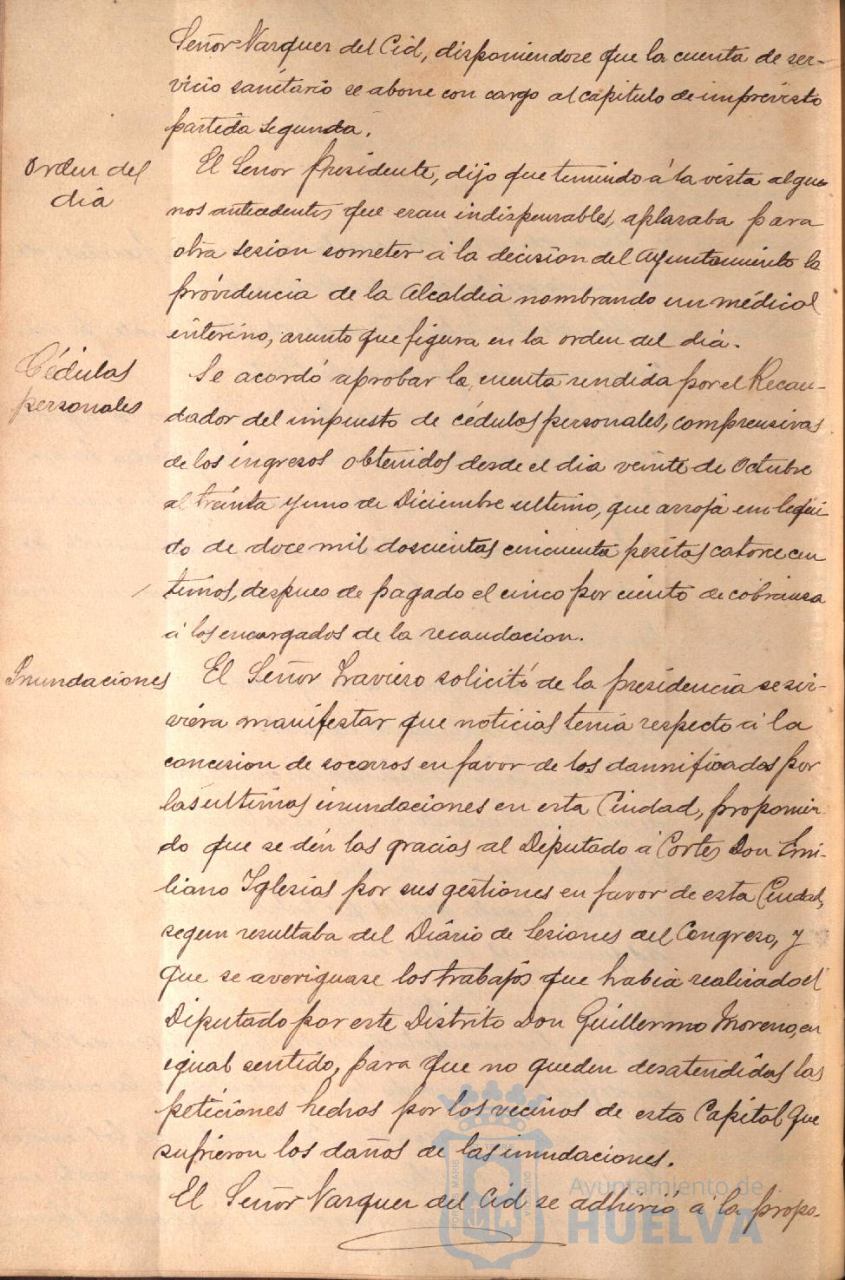 Señor Vazquez del Cid, disponiendose que la cuenta de ser-
vicio sanitario se abone con cargo al capitulo de imprevisto
partida segunda.
Orden del
dia
El Señor Presidente, dijo que teniendo á la vista algu-
nos antecedentes que eran indispensables, aplazaba para
otra sesion someter á la decision del Ayuntamiento la
providencia de la Alcaldia nombrando un médico
interino, asunto que figura en la orden del dia.
Cédulas
personales
Se acordó aprobar la cuenta rendida por el Recau-
dador del impuesto de cédulas personales, comprensivas
de los ingresos obtenidos desde el dia veinte de Octubre
al treinta y uno de Diciembre ultimo, que arroja un liqui-
do de doce mil doscientas cincuenta pesetas catorce cen
timos, despues de pagado el cinco por ciento de cobranza
á los encargados de la recaudacion.
Inundaciones
El Señor Traviezo solicitó de la presidencia se sir-
viera manifestar que noticias tenia respecto á la
concesion de socorros en favor de los damnificados por
las ultimas inundaciones en esta Ciudad, proponien-
do que se dén las gracias al Diputado á Cortes Don Emi-
liano Iglesias por sus gestiones en favor de esta Ciudad,
segun resultaba del Diário de Sesiones del Congreso, y
que se averiguase los trabajos que habia realizado el
Diputado por este Distrito Don Guillermo Moreno, en
igual sentido, para que no queden desatendidas las
peticiones hechas por los vecinos de esta Capital que
sufrieron los daños de las inundaciones.
El Señor Vazquez del Cid se adhirió a la propo-
Ayuntamiento de
HUELVA